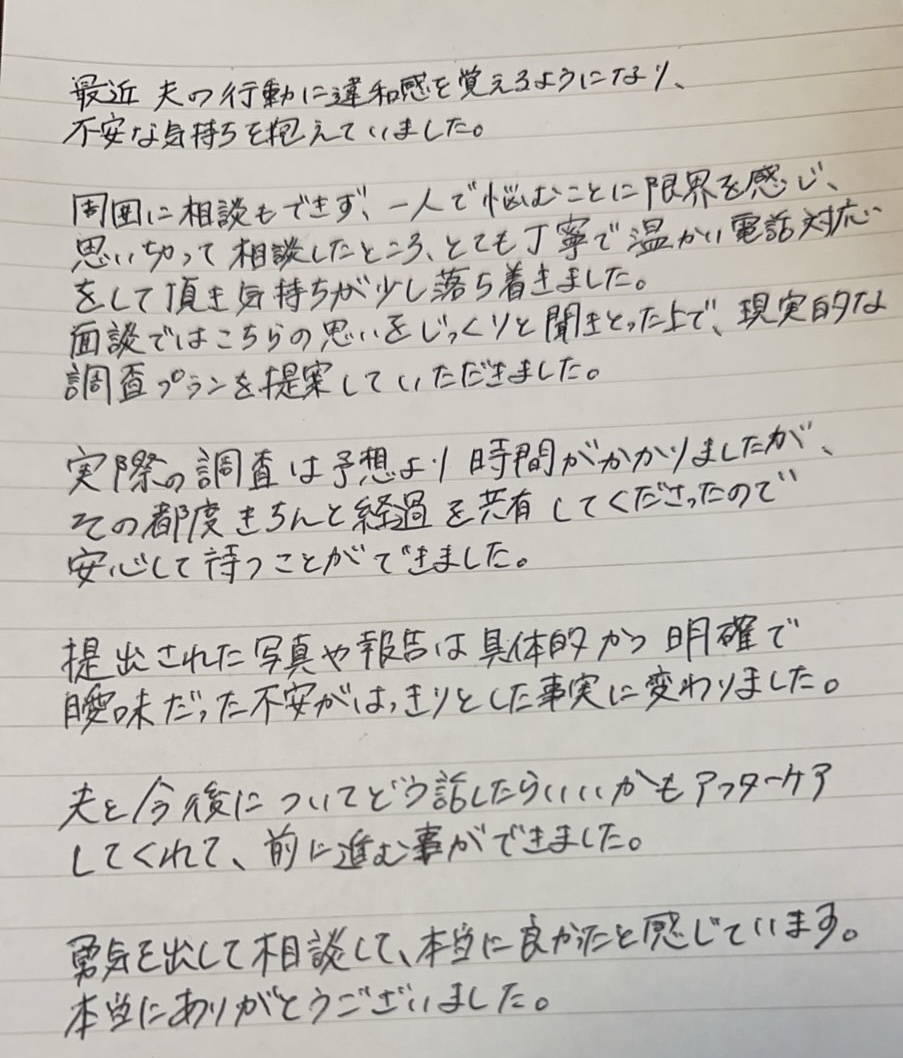 最近 夫の行動に違和感を覚えるようになり、
不安な気持ちを抱えていました。
周囲に相談もできず、一人で悩むことに限界を感じ、
思い切って相談したところ、とても丁寧で温かい電話対応
をして頂き気持ちが少し落ち着きました。
面談ではこちらの思いをじっくりと聞きとった上で、現実的な
調査プランを提案していただきました。
実際の調査は予想より時間がかかりましたが、
その都度きちんと経過を共有してくださったので
安心して待つことができました。
提出された写真や報告は具体的かつ明確で
曖昧だった不安がはっきりとした事実に変わりました。
夫と今後についてどう話したらいいかもアフターケア
してくれて、前に進む事ができました。
勇気を出して相談して、本当に良かったと感じています。
本当にありがとうございました。